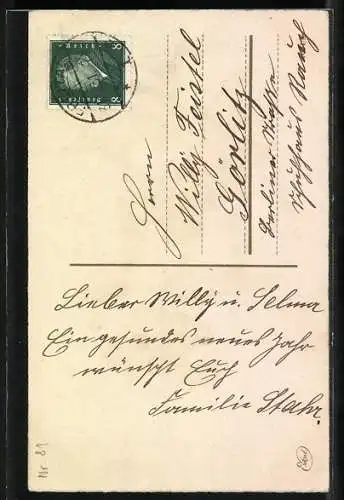 8 Deutsches 8
Reich
Herrn
Willy Feistel
Görlitz
Berliner Straße
Schuhhaus Rauch
Lieber Willy u. Selma
Ein gesundes neues Jahr
wünscht Euch
Familie Stahr.
Nr. 81